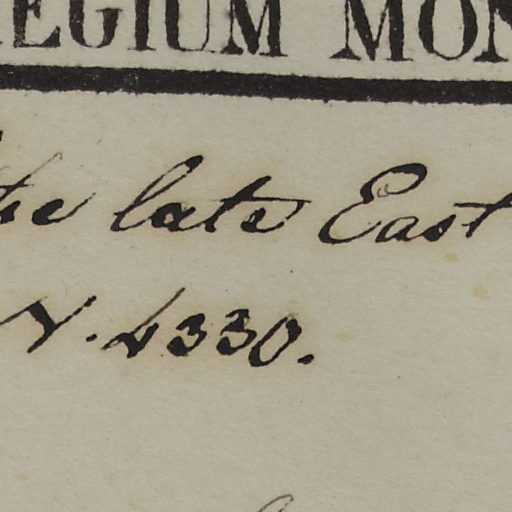 REGIUM MON
the late East
N. 4330.